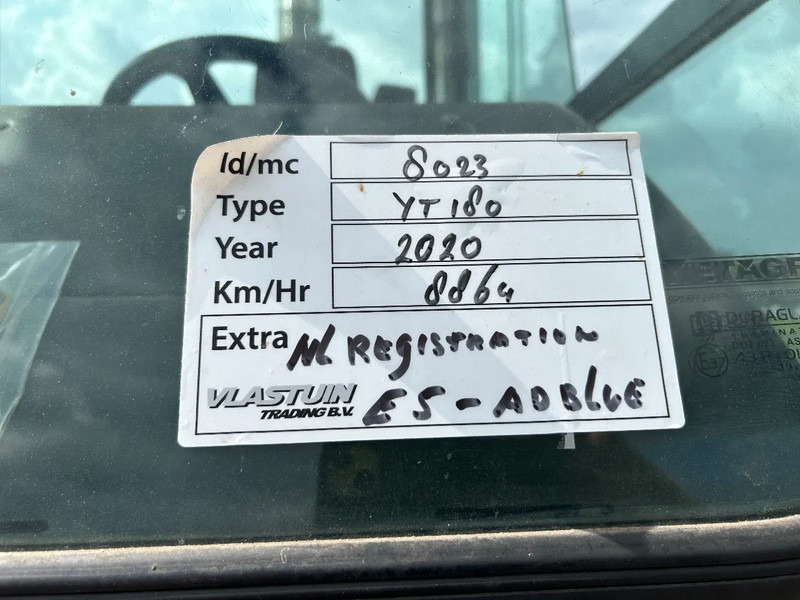 Id/mc 8023
Type YT180
Year 2020
Km/Hr 8864
Extra NL REGISTRATION
VLASTUIN
TRADING B.V.
E5 - ADBLUE